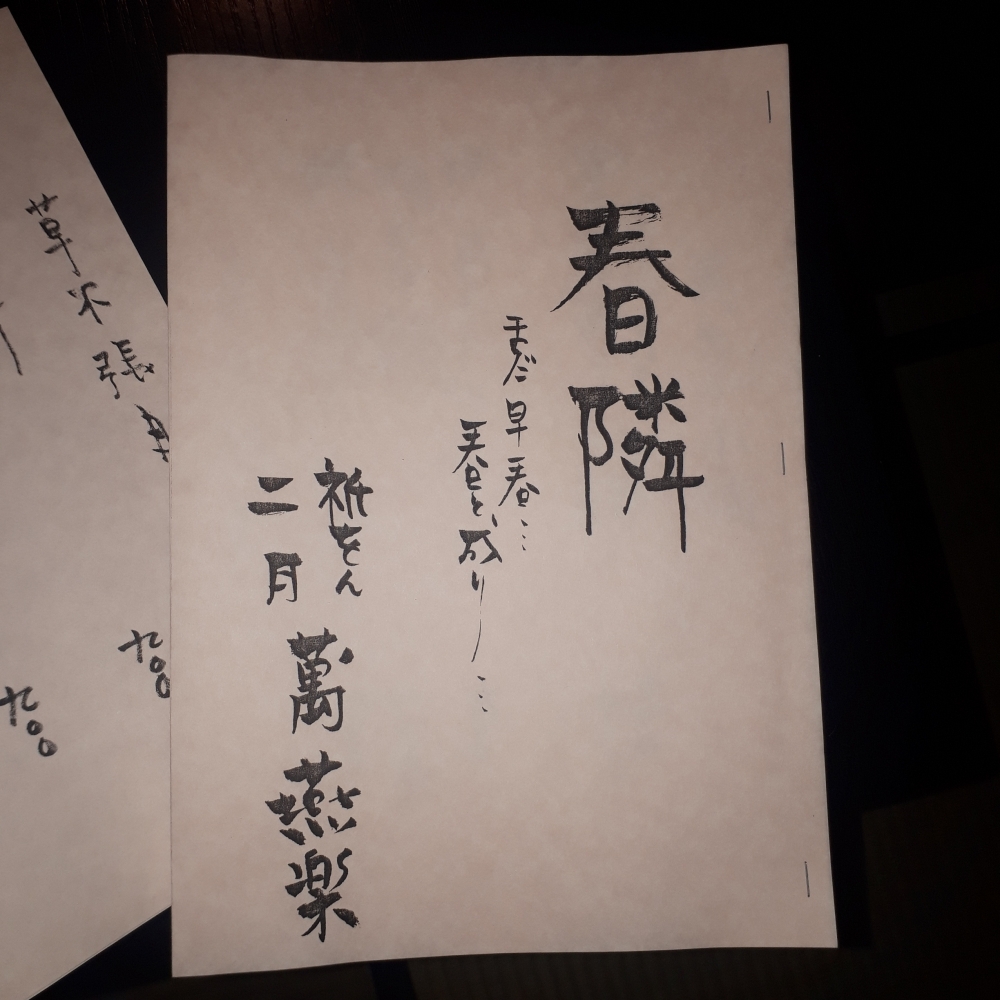 春隣
まだ早春…
春と、成り…
祇をん
萬燕楽
二月
草不張
九〇〇
九〇〇